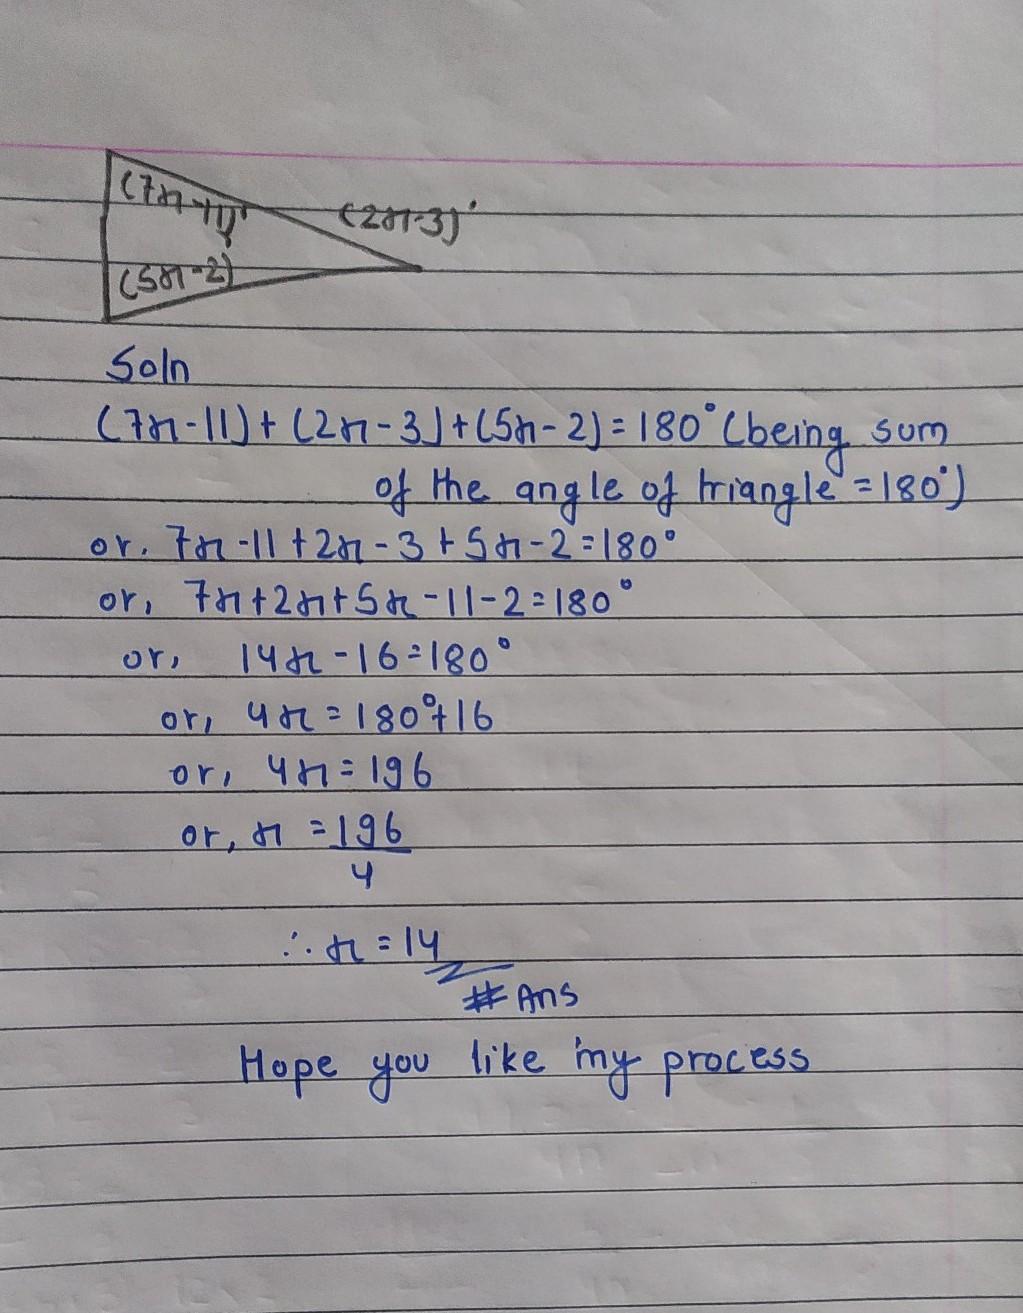 (7x-11)°
(2x-3)°
(5x-2)
Soln
(7x-11)+(2x-3)+(5x-2)=180° (being sum
of the angle of triangle =180°)
or, 7x-11+2x-3+5x-2=180°
or, 7x+2x+5x-11-2=180°
or, 14x-16=180°
or, 4x=180°+16
or, 4x=196
or, x =196
4
∴ x=14
# Ans
Hope you like my process